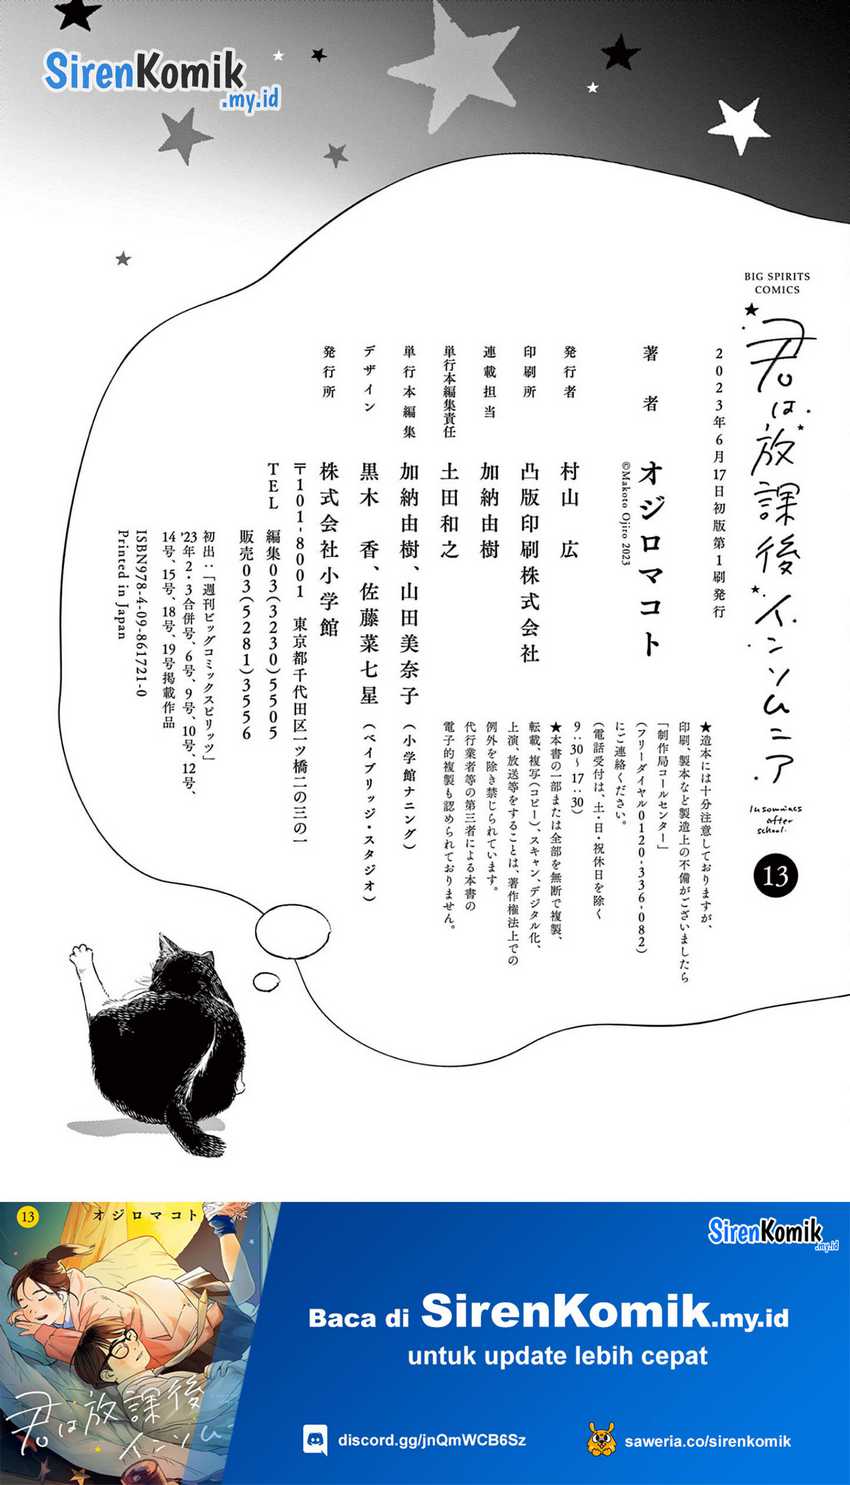 SirenKomik
.my.id
BIG SPIRITS
COMICS
君は放課後インソムニア
Insomniacs
after
school.
13
2023年6月17日初版第1刷発行
著者
オジロマコト
©Makoto Ojiro 2023
発行者
村山 広
印刷所
凸版印刷株式会社
連載担当
加納由樹
単行本編集責任
土田和之
単行本編集
加納由樹、山田美奈子(小学館ナニング)
デザイン
黒木 香、佐藤菜七星(ベイブリッジ・スタジオ)
発行所
株式会社小学館
〒101-8001 東京都千代田区一ツ橋二の三の一
TEL 編集03(3230)5505
販売03(5281)3556
初出:「週刊ビッグコミックスピリッツ」
'23年2・3合併号、6号、9号、10号、12号、
14号、15号、18号、19号掲載作品
ISBN978-4-09-861721-0
Printed in Japan
★造本には十分注意しておりますが、
印刷、製本など製造上の不備がございましたら
「制作局コールセンター」
(フリーダイヤル0120-336-082)
にご連絡ください。
(電話受付は、土・日・祝休日を除く
9:30〜17:30)
★本書の一部または全部を無断で複製、
転載、複写(コピー)、スキャン、デジタル化、
上演、放送等をすることは、著作権法上での
例外を除き禁じられています。
代行業者等の第三者による本書の
電子的複製も認められておりません。
13
オジロマコト
君は放課後
インソム
SirenKomik
.my.id
Baca di SirenKomik.my.id
untuk update lebih cepat
discord.gg/jnQmWCB6Sz
saweria.co/sirenkomik